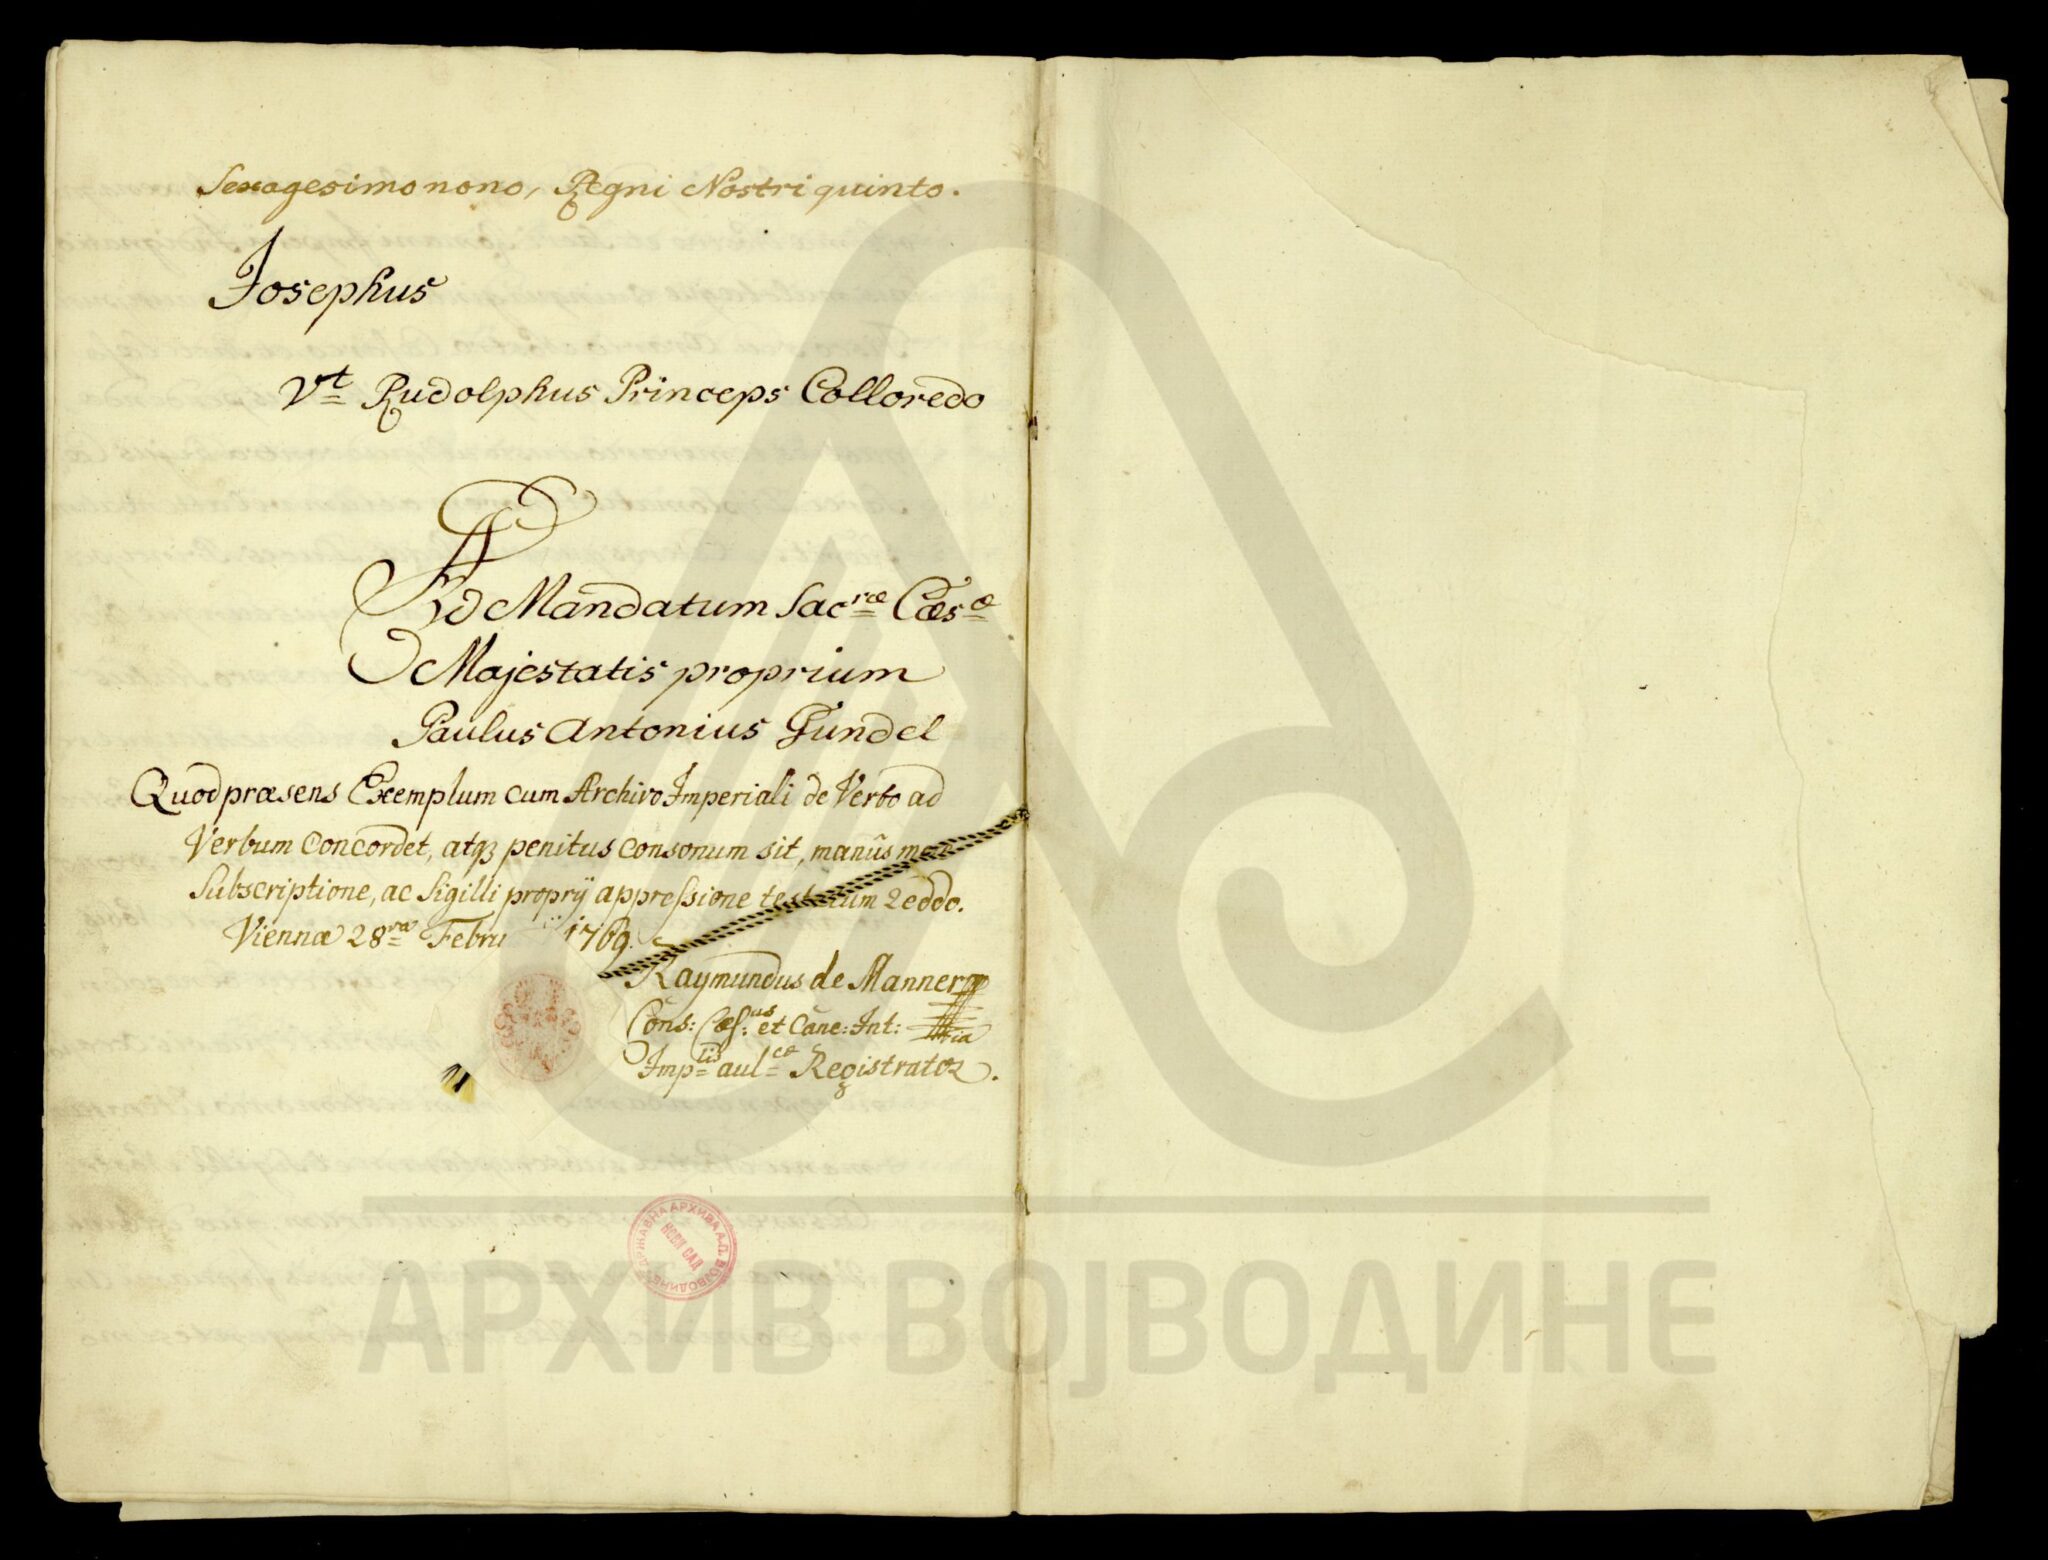 Sexagesimo nono, Regni Nostri quinto.
Josephus
Vt Rudolphus Princeps Colloredo
Ad Mandatum Sacræ Cæsæ
Majestatis proprium
Paulus Antonius Gundel
Quod præsens Exemplum cum Archivo Imperiali de Verbo ad
Verbum Concordet, atq3 penitus consonum sit, manûs meæ
Subscriptione, ac Sigilli proprij appressione testatum reddo.
Viennæ 28va Febru 1769.
Raymundus de Manner
Cons: Cæs:us et Canc: Int:
Implis aulcæ Registrator.
ДРЖАВНА АРХИВА А.П. ВОЈВОДИНЕ
НОВИ САД
АРХИВ ВОЈВОДИНЕ